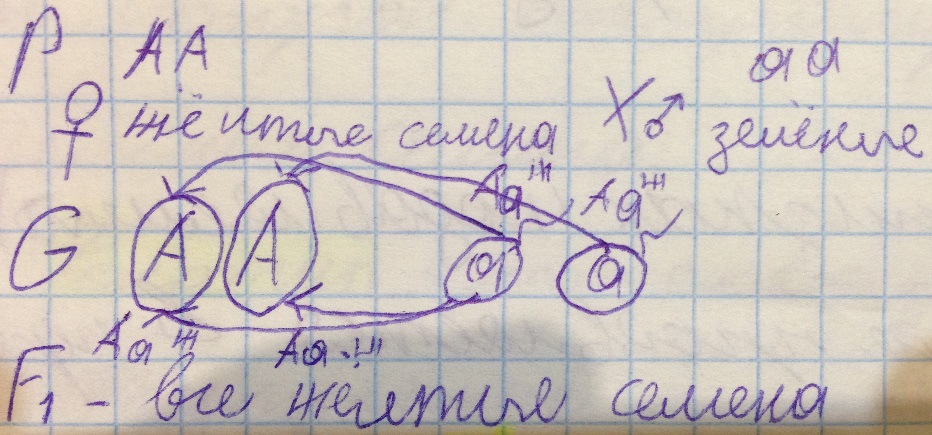 P AA aa
♀ жёлтые семена X ♂ зелёные
Aaж Aaж
G A A a a
Aaж Aaж
F1 - все желтые семена